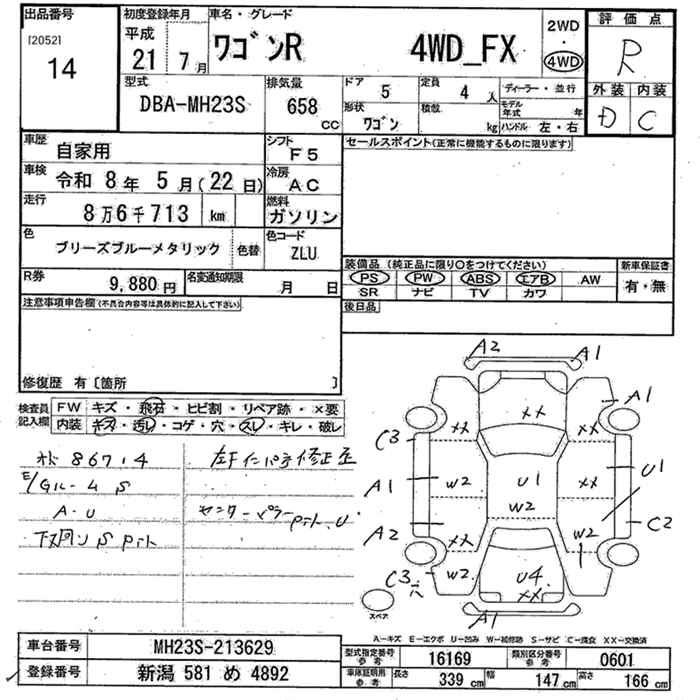 出品番号
[2052]
14
初度登録年月
平成
21 7月
車名・グレード
ワゴンR 4WD_FX
2WD
・
4WD
評価点
R
外装 内装
D C
型式
DBA-MH23S
排気量
658 cc
ドア 5
定員 4 人
ディーラー・並行
形状 ワゴン
積載 kg
モデル年式 年
ハンドル 左・右
車歴 自家用
シフト F5
車検 令和 8年 5月(22日)
冷房 AC
走行 8万6千713 km
燃料 ガソリン
色 ブリーズブルーメタリック 色替
色コード ZLU
R券 9,880円
名変通知期限 月 日
セールスポイント(正常に機能するものに限ります)
装備品 (純正品に限り○をつけてください)
PS PW ABS エアB AW
SR ナビ TV カワ
新車保証書
有・無
後日品
注意事項申告欄(不具合内容等は具体的に記入して下さい)
修復歴 有〔箇所 〕
検査員記入欄
FW キズ・飛石・ヒビ割・リペア跡・×要
内装 キズ・汚レ・コゲ・穴・スレ・キレ・破レ
86714
E/Gルーム S
A・U
下廻り S Pitん
センターピラー Pitん.U
A2 A1
A1
XX
XX XX
C3
A1 W2 U1 XX U1
W2
A2 XX W2 C2
C3 穴 W2 U4
XX
A1
スペア
A-キズ E-エクボ U-凹み W-補修跡 S-サビ C-腐食 XX-交換済
車台番号 MH23S-213629
登録番号 新潟 581 め 4892
型式指定番号 参考 16169
類別区分番号 参考 0601
車庫証明用 参考 長さ 339 cm 幅 147 cm 高さ 166 cm